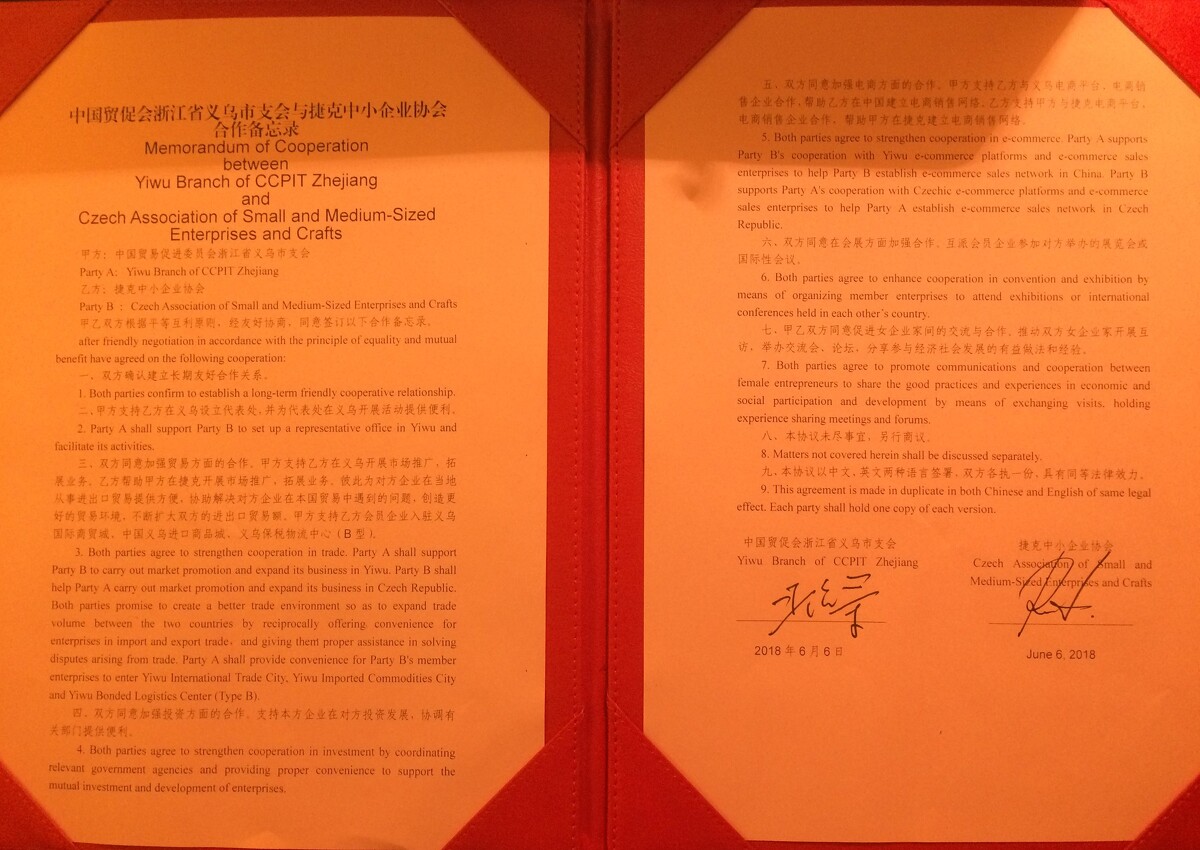 中国贸促会浙江省义乌市支会与捷克中小企业协会
合作备忘录
Memorandum of Cooperation
between
Yiwu Branch of CCPIT Zhejiang
and
Czech Association of Small and Medium-Sized
Enterprises and Crafts
甲方：中国贸易促进委员会浙江省义乌市支会
Party A: Yiwu Branch of CCPIT Zhejiang
乙方：捷克中小企业协会
Party B : Czech Association of Small and Medium-Sized Enterprises and Crafts
甲乙双方根据平等互利原则，经友好协商，同意签订以下合作备忘录。
after friendly negotiation in accordance with the principle of equality and mutual
benefit have agreed on the following cooperation:
一、双方确认建立长期友好合作关系。
1. Both parties confirm to establish a long-term friendly cooperative relationship.
二、甲方支持乙方在义乌设立代表处，并为代表处在义乌开展活动提供便利。
2. Party A shall support Party B to set up a representative office in Yiwu and
facilitate its activities.
三、双方同意加强贸易方面的合作。甲方支持乙方在义乌开展市场推广，拓
展业务。乙方帮助甲方在捷克开展市场推广，拓展业务。彼此为对方企业在当地
从事进出口贸易提供方便，协助解决对方企业在本国贸易中遇到的问题，创造更
好的贸易环境，不断扩大双方的进出口贸易额。甲方支持乙方会员企业入驻义乌
国际商贸城、中国义乌进口商品城、义乌保税物流中心（B 型）。
3. Both parties agree to strengthen cooperation in trade. Party A shall support
Party B to carry out market promotion and expand its business in Yiwu. Party B shall
help Party A carry out market promotion and expand its business in Czech Republic.
Both parties promise to create a better trade environment so as to expand trade
volume between the two countries by reciprocally offering convenience for
enterprises in import and export trade, and giving them proper assistance in solving
disputes arising from trade. Party A shall provide convenience for Party B's member
enterprises to enter Yiwu International Trade City, Yiwu Imported Commodities City
and Yiwu Bonded Logistics Center (Type B).
四、双方同意加强投资方面的合作。支持本方企业在对方投资发展，协调有
关部门提供便利。
4. Both parties agree to strengthen cooperation in investment by coordinating
relevant government agencies and providing proper convenience to support the
mutual investment and development of enterprises.
五、双方同意加强电商方面的合作。甲方支持乙方与义乌电商平台、电商销
售企业合作，帮助乙方在中国建立电商销售网络。乙方支持甲方与捷克电商平台、
电商销售企业合作，帮助甲方在捷克建立电商销售网络。
5. Both parties agree to strengthen cooperation in e-commerce. Party A supports
Party B's cooperation with Yiwu e-commerce platforms and e-commerce sales
enterprises to help Party B establish e-commerce sales network in China. Party B
supports Party A's cooperation with Czechic e-commerce platforms and e-commerce
sales enterprises to help Party A establish e-commerce sales network in Czech
Republic.
六、双方同意在会展方面加强合作。互派会员企业参加对方举办的展览会或
国际性会议。
6. Both parties agree to enhance cooperation in convention and exhibition by
means of organizing member enterprises to attend exhibitions or international
conferences held in each other's country.
七、甲乙双方同意促进女企业家间的交流与合作。推动双方女企业家开展互
访，举办交流会、论坛，分享参与经济社会发展的有益做法和经验。
7. Both parties agree to promote communications and cooperation between
female entrepreneurs to share the good practices and experiences in economic and
social participation and development by means of exchanging visits, holding
experience sharing meetings and forums.
八、本协议未尽事宜，另行商议。
8. Matters not covered herein shall be discussed separately.
九、本协议以中文、英文两种语言签署，双方各执一份，具有同等法律效力。
9. This agreement is made in duplicate in both Chinese and English of same legal
effect. Each party shall hold one copy of each version.
中国贸促会浙江省义乌市支会
Yiwu Branch of CCPIT Zhejiang
2018 年 6 月 6 日
捷克中小企业协会
Czech Association of Small and
Medium-Sized Enterprises and Crafts
June 6, 2018